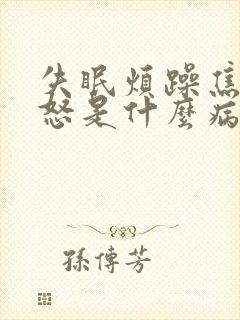 失眠煩躁焦
怒是什麼病
孫傳芳